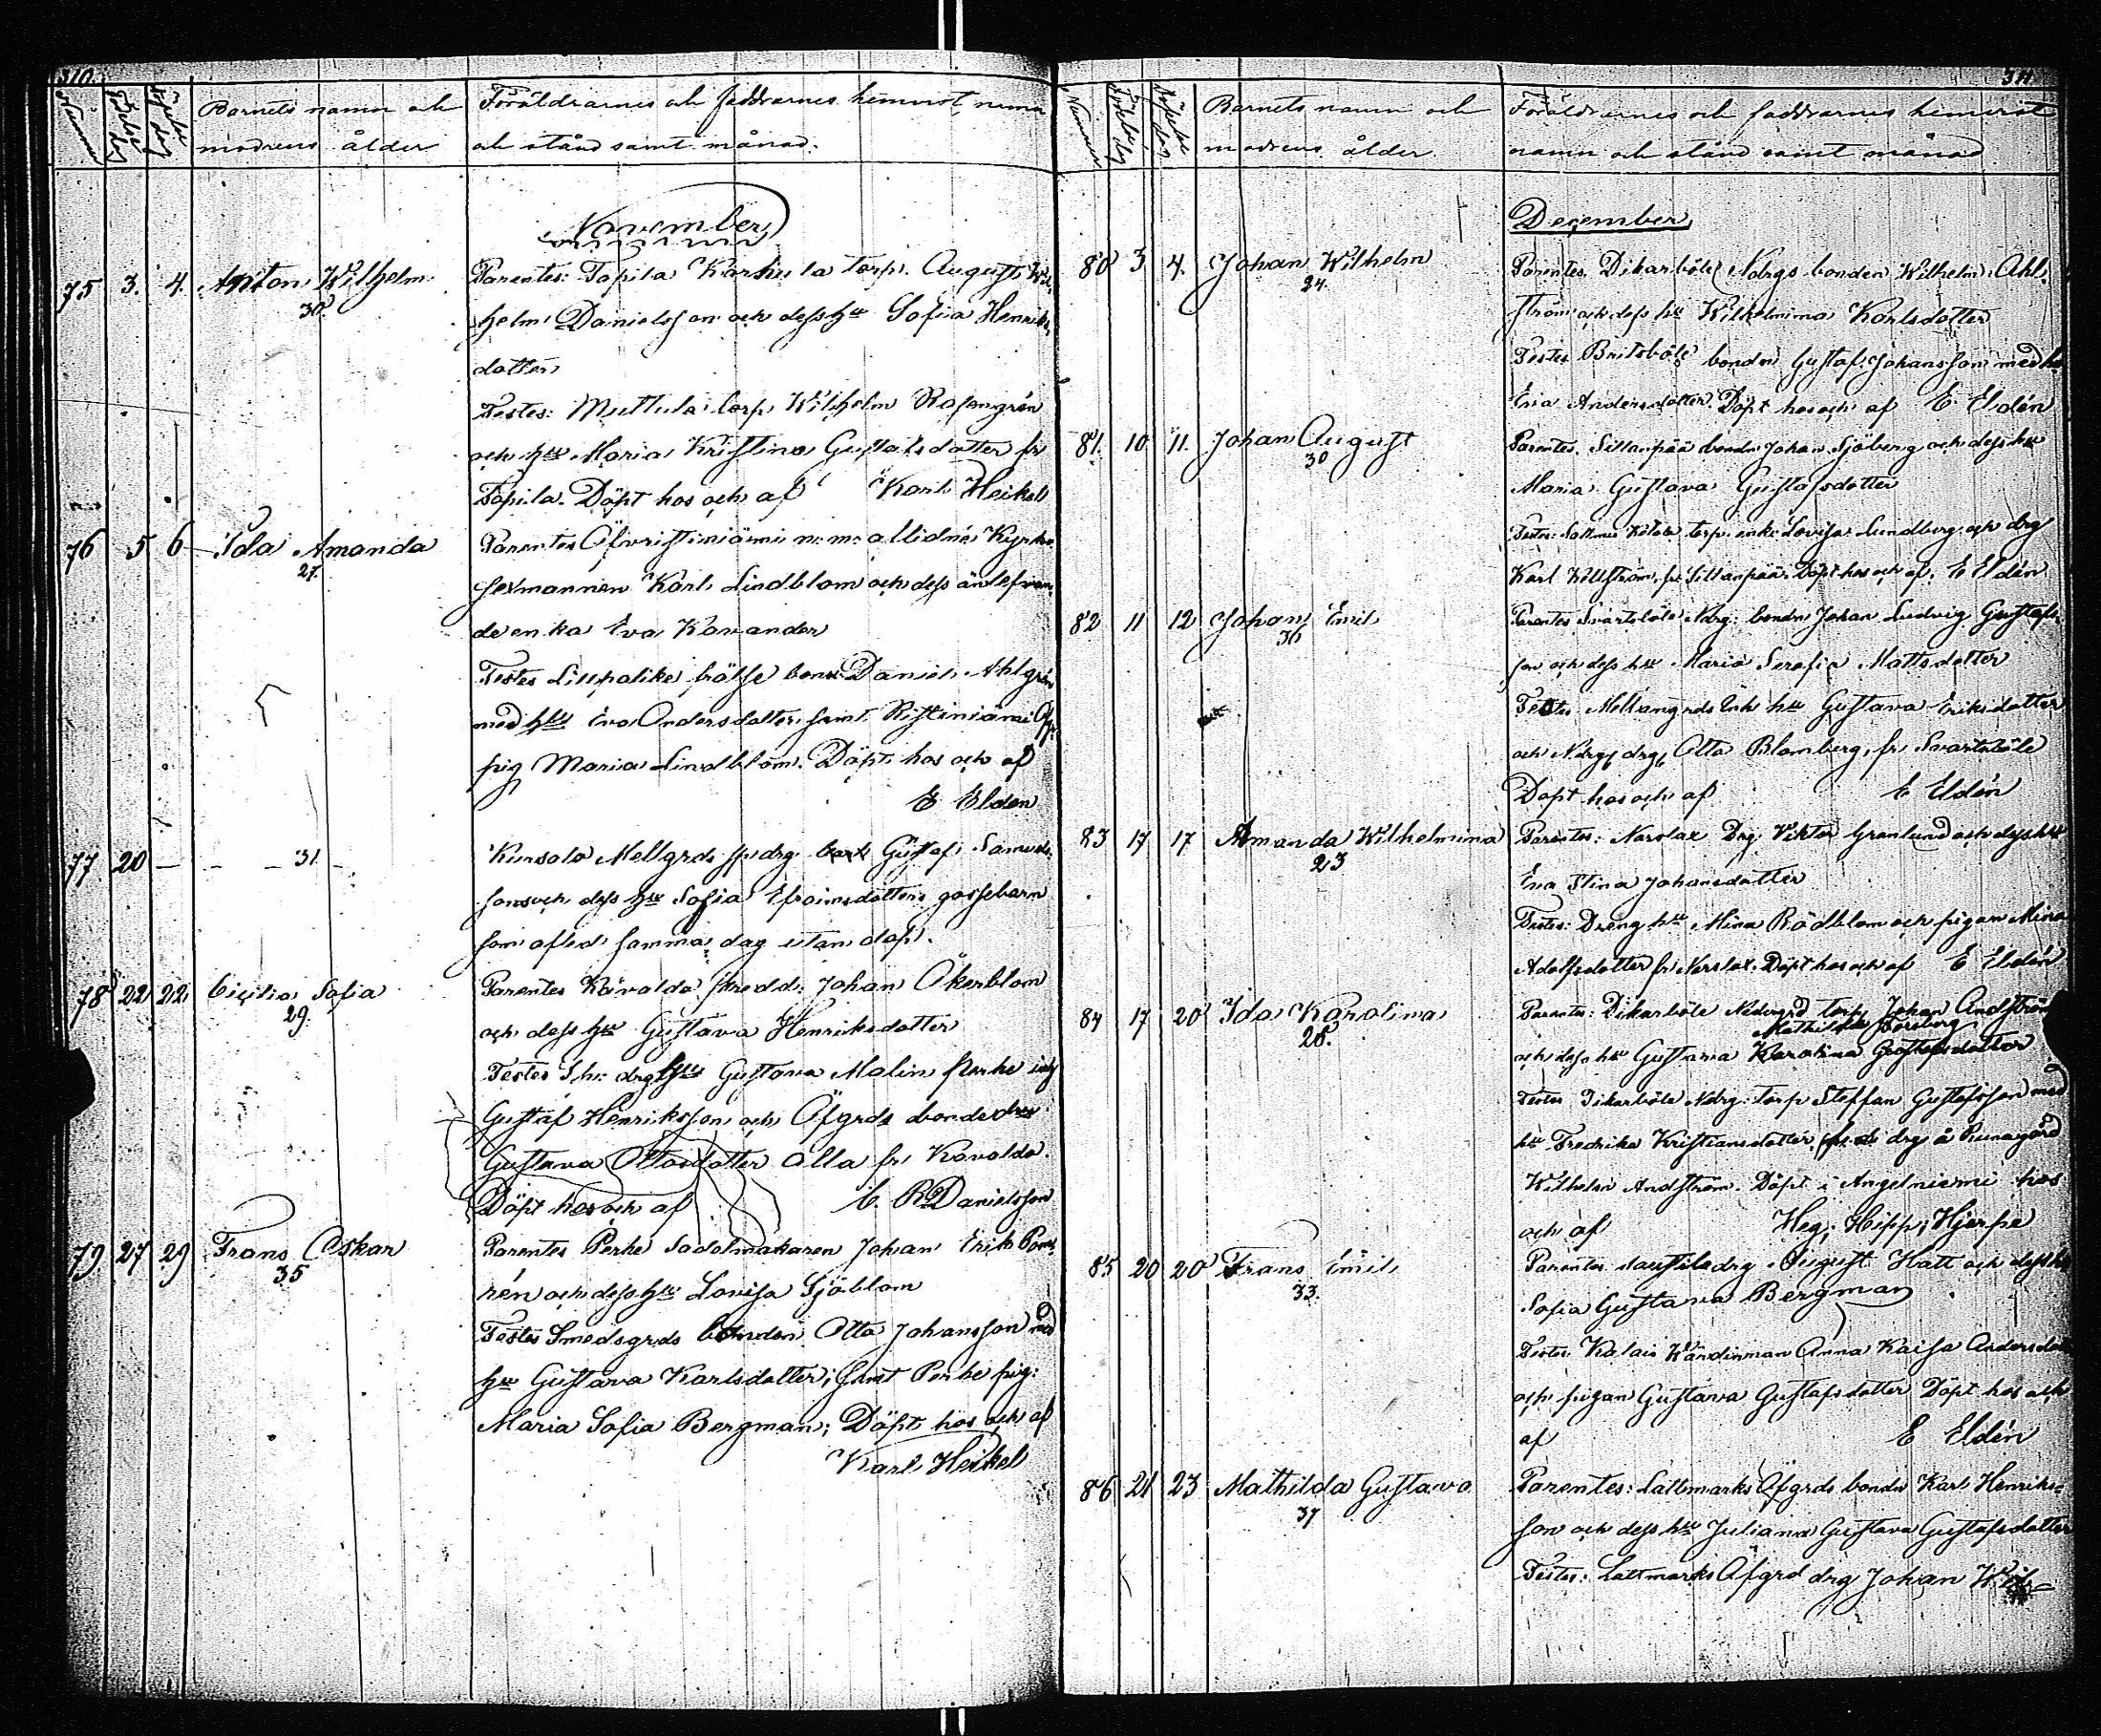 310.
Nummer
Födelse dag
Döpelse dag
Barnets namn och
modrens ålder
Föräldrarnes och faddrarnes hemvist, namn
och stånd samt månad.
November
75 3. 4. Anton Wilhelm
30
Parentes: Tapila Karhula torp. August Wil,
helm Danielsson och dess hu Sofia Henriks,
dotter
Testes: Muttula torp Wilhelm Rosengrén
och hu Maria Kristina Gustafsdotter fr
Tapila. Döpt hos och af Karl Heikel
76 5 6 Ida Amanda
27.
Parentes Öfvristiniämi Kyrko,
sexmannen Karl Lindblom och dess änlefvan,
de enka Eva Kavander
Testes bonden Daniel Ahlgrén
med hu Eva Andersdotter samt Ristiniämi
pig Maria Lindblom. Döpt hos och af
E Eldén
77 20 — — 31. —
Kinsala Mellgrds drg Gustaf Samuels,
sons och dess hu Sofia Efraimsdotters gossebarn
som afled samma dag utan dop.
78 22 22 Cicilia Sofia
29.
Parentes Kåvalda skredd: Johan Åkerblom
och dess hu Gustava Henriksdotter
Testes drg hu Gustava Malin Perhe
Gustaf Henriksson och Öfgrds bonde
Gustava Ottosdotter alla fr Kåvalda.
Döpt hos och af C. R Danielsson
79 27 29 Frans Oskar
35
Parentes Perhe Sadelmakaren Johan Erik
rén och dess hu Lovisa Sjöblom
Testes Smedsgrds bonden Otto Johansson med
hu Gustava Karlsdotter; samt Perhe pig:
Maria Sofia Bergman; Döpt hos och af
Karl Heikel
311
Nummer
Födelse dag
Döpelse dag
Barnets namn och
modrens ålder
Föräldrarnes och faddrarnes hemvist
namn och stånd samt månad
December
80 3 4. Johan Wilhelm
24.
Parentes. Dikarböle Ndrgs bonden Wilhelm Ahl,
ström och dess hu Wilhelmina Karlsdotter
Testes Britsböle bonden Gustaf Johansson med hu
Eva Andersdotter Döpt hos och af E. Eldén
81. 10. 11. Johan August
30
Parentes. Sillanpää bonden Johan Sjöberg och dess hu
Maria Gustava Gustafsdotter
Testes: torp. enk: Lovisa Lundberg och drg
Karl Killström fr: Sillanpää. Döpt hos och af. E Eldén
82 11 12 Johan Emil
Parentes Svartsböle Ndrg: bonden Johan Ludvig Gustafs,
son och dess hu Maria Serafia Mattsdotter
Testes Mellangrds hu Gustava Eriksdotter
och Ndrg drg, Otto Blomberg, fr Svartsböle
Döpt hos och af E Eldén
83 17 17 Amanda Wilhelmina
23
Parentes: Narslax Drg Viktor Granlund och dess hu
Eva Stina Johansdotter
Testes: Dreng hu Mina Rödblom och pigan Mina
Adolfsdotter fr Narslax. Döpt hos och af E Eldén
84 17 20 Ida Karolina
28.
Parentes: Dikarböle torp Johan Andström
Mathilda Forsberg
och dess hu Gustava Karolina Gustafsdotter
Testes Dikarböle Ndrg: torp Steffan Gustafsson med
hu Fredrika Kristiansdotter, drg å Runagård
Wilhelm Andström. Döpt i Angelniemi hos
och af Heg; Kopp; Hjerpe
85 20 20 Frans Emil
33.
Parentes drg August Hatt och dess hu
Sofia Gustava Bergman
Testes. Kalais Anna Kaisa Andersdotter
och pigan Gustava Gustafsdotter Döpt hos och
af E Eldén
86 21 23 Mathilda Gustava
37
Parentes: Lattmarks Öfgrds bonde Karl Henriks-
son och dess hu Juliana Gustava Gustafsdotter
Testes: Lattmarks Öfgrd drg Johan